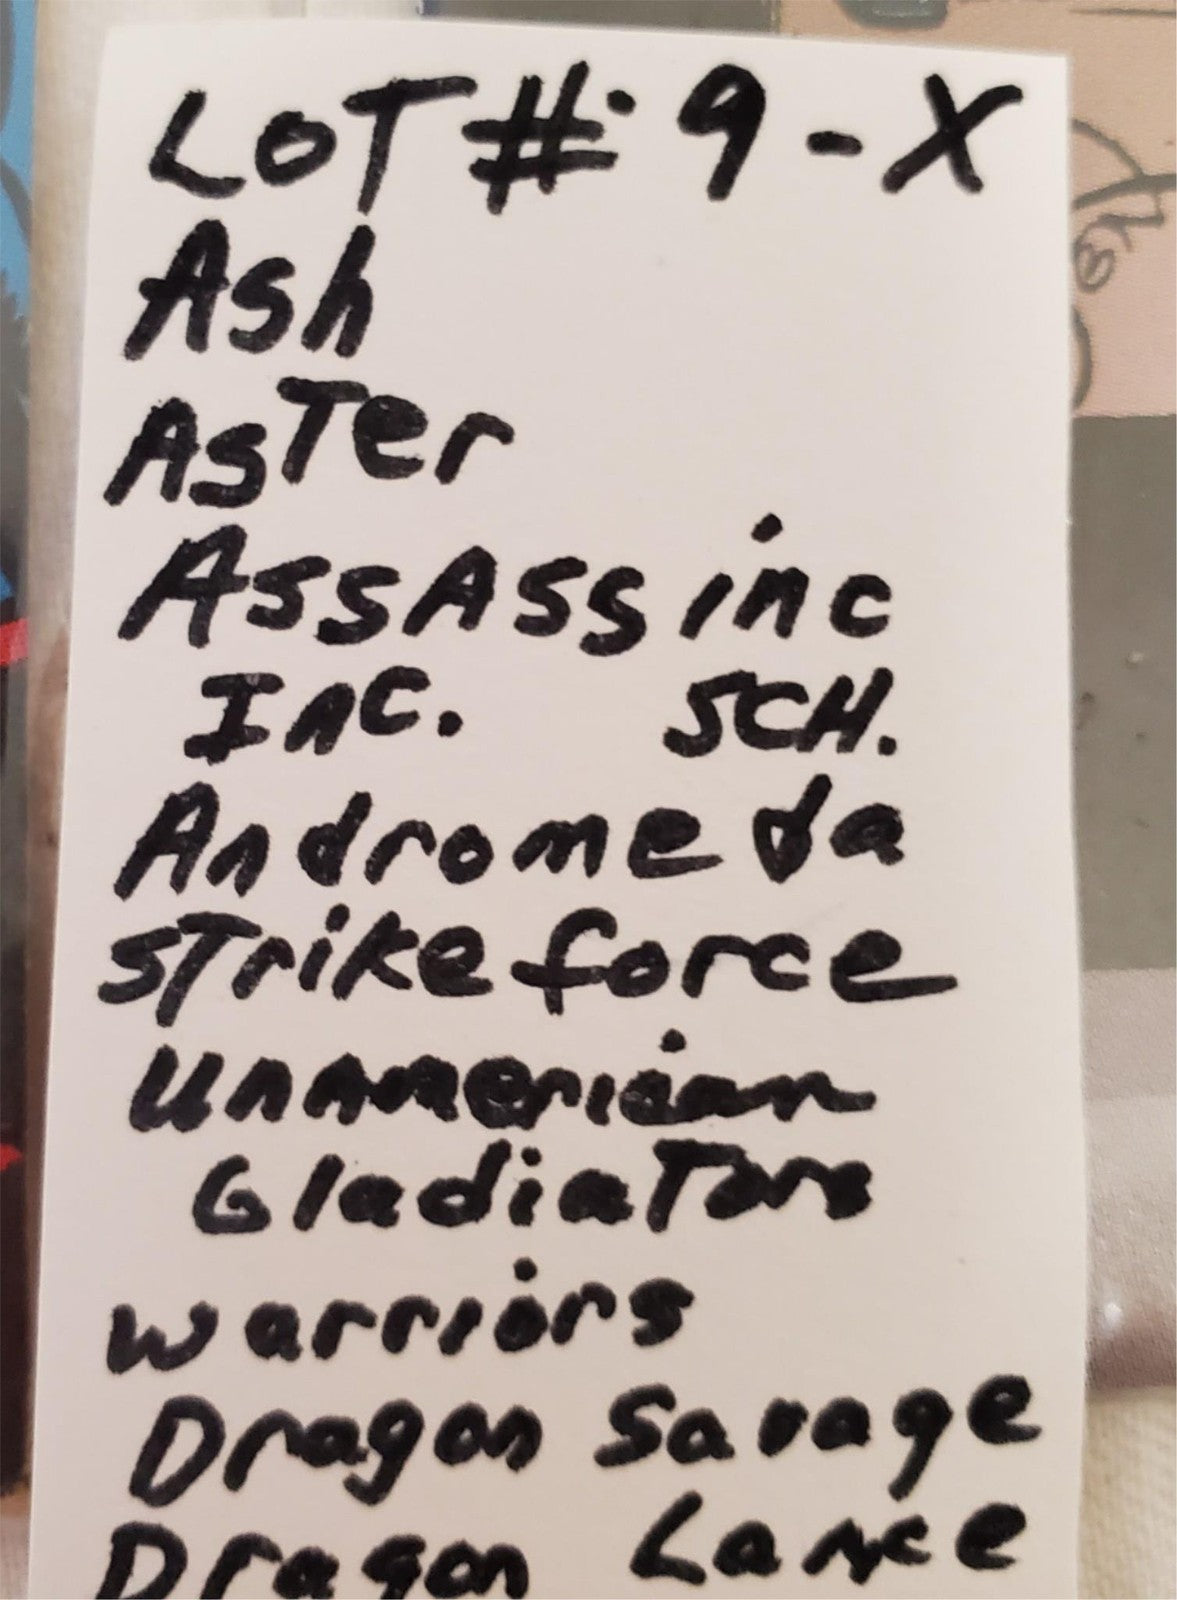 LOT #: 9 - X
Ash
Aster
AssAssinc
Inc. SCH.
Andromeda
strike force
unamerican
Gladiators
warriors
Dragon Savage
Dragon Lance